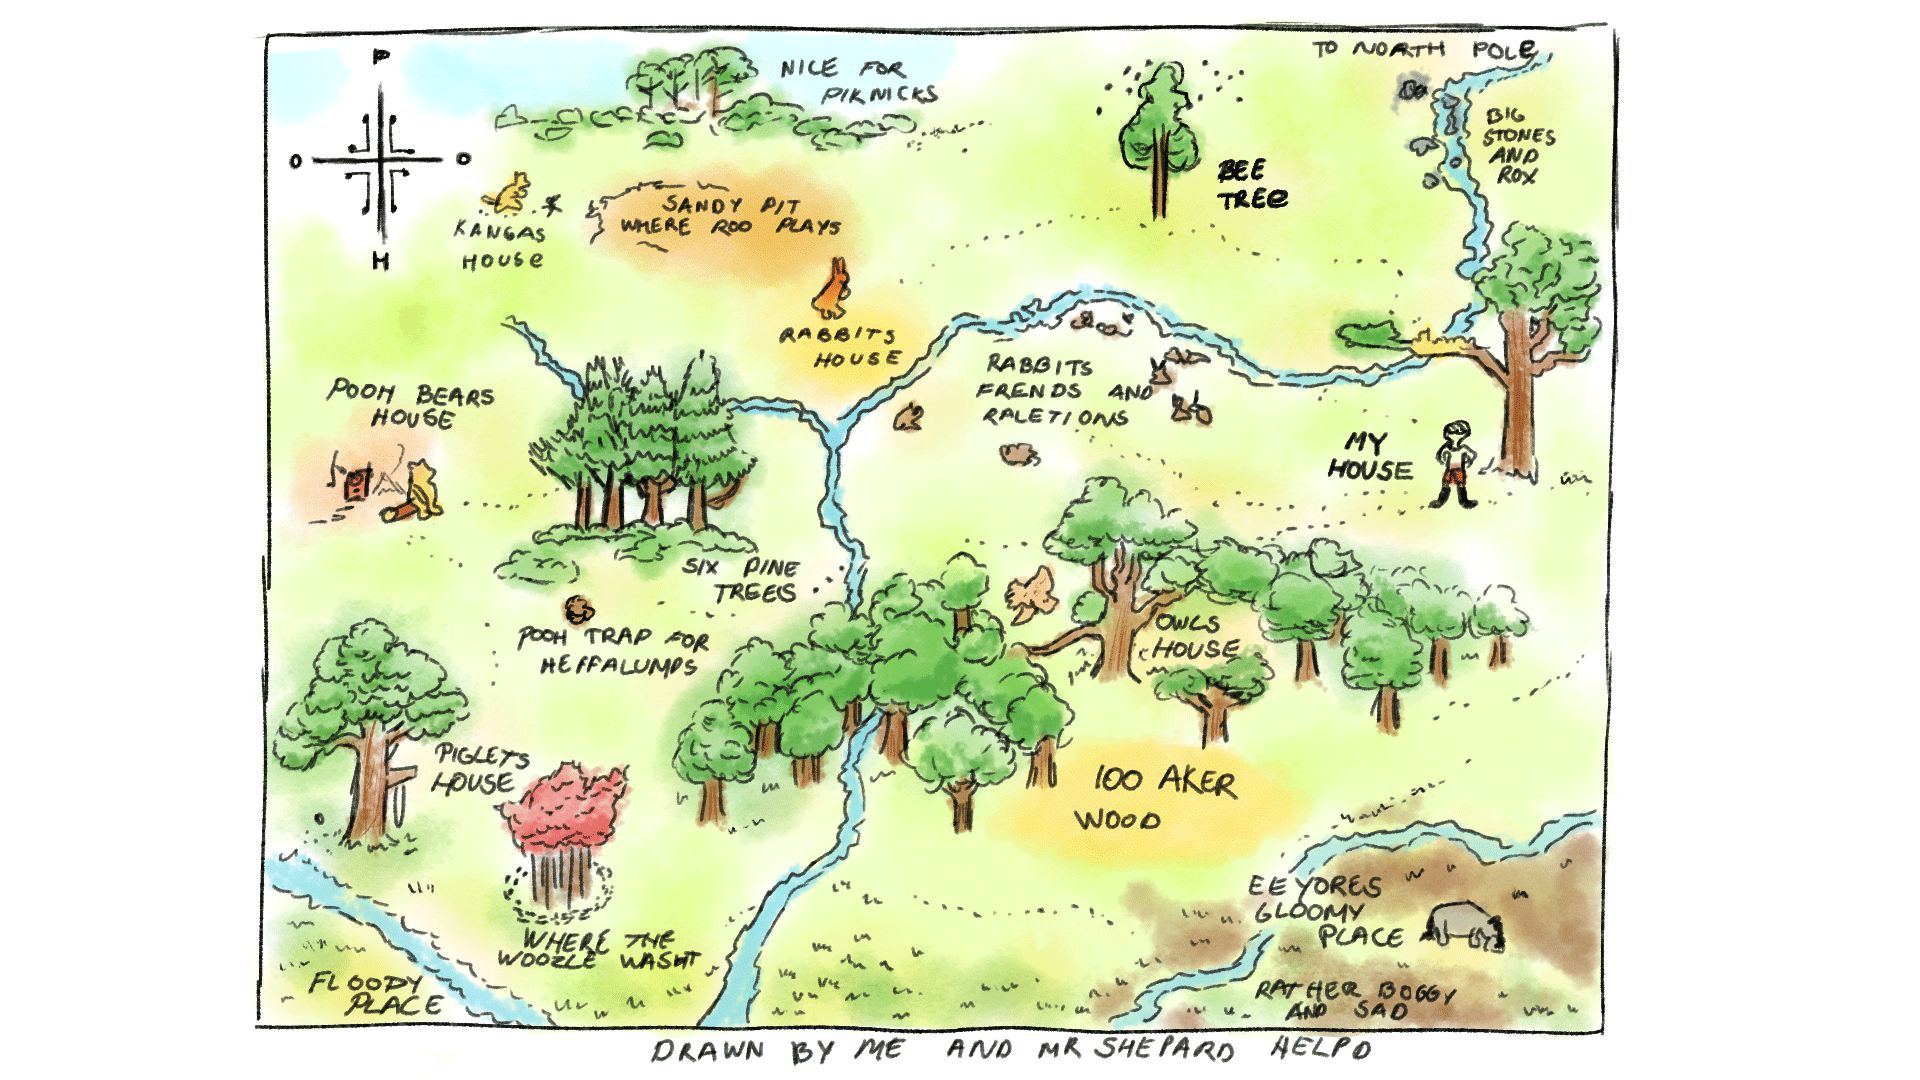 TO NORTH POLE
P
O
O
H
NICE FOR
PIKNICKS
BIG
STONES
AND
ROX
BEE
TREE
KANGAS
HOUSE
SANDY PIT
WHERE ROO PLAYS
RABBITS
HOUSE
RABBITS
FRENDS AND
RALETIONS
POOH BEARS
HOUSE
MY
HOUSE
SIX PINE
TREES
POOH TRAP FOR
HEFFALUMPS
OWLS
HOUSE
PIGLETS
HOUSE
100 AKER
WOOD
WHERE THE
WOOZLE WASNT
FLOODY
PLACE
EEYORES
GLOOMY
PLACE
RATHER BOGGY
AND SAD
DRAWN BY ME AND MR SHEPARD HELPD